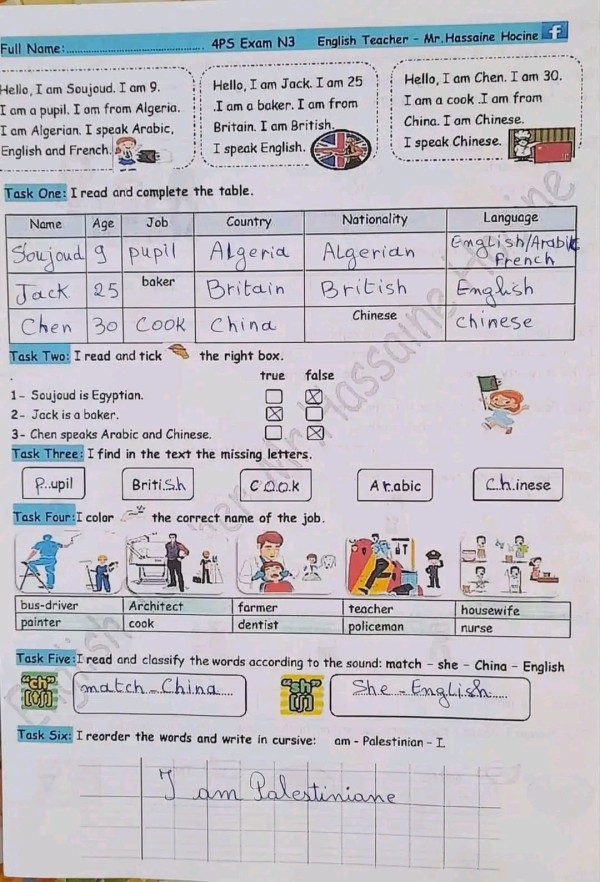 Full Name:................................................ 4PS Exam N3 English Teacher - Mr.Hassaine Hocine f
Hello, I am Soujoud. I am 9.
I am a pupil. I am from Algeria.
I am Algerian. I speak Arabic,
English and French.
Hello, I am Jack. I am 25
.I am a baker. I am from
Britain. I am British.
I speak English.
Hello, I am Chen. I am 30.
I am a cook .I am from
China. I am Chinese.
I speak Chinese.
Task One: I read and complete the table.
Name Age Job Country Nationality Language
Soujoud 9 pupil Algeria Algerian English/Arabic
French
Jack 25 baker Britain British English
Chen 30 cook China Chinese chinese
Task Two: I read and tick the right box.
true false
1- Soujoud is Egyptian.
2- Jack is a baker.
3- Chen speaks Arabic and Chinese.
Task Three: I find in the text the missing letters.
p..upil British cook Arabic Chinese
Task Four: I color the correct name of the job.
bus-driver Architect farmer teacher housewife
painter cook dentist policeman nurse
Task Five: I read and classify the words according to the sound: match - she - China - English
"ch" [tʃ] match - China.... "sh" [ʃ] She - English......
Task Six: I reorder the words and write in cursive: am - Palestinian - I.
I am Palestiniane